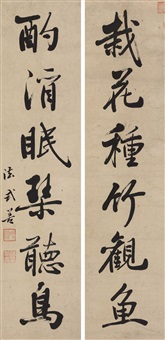 栽花種竹觀魚
酌酒眠琹聽鳥
法式善